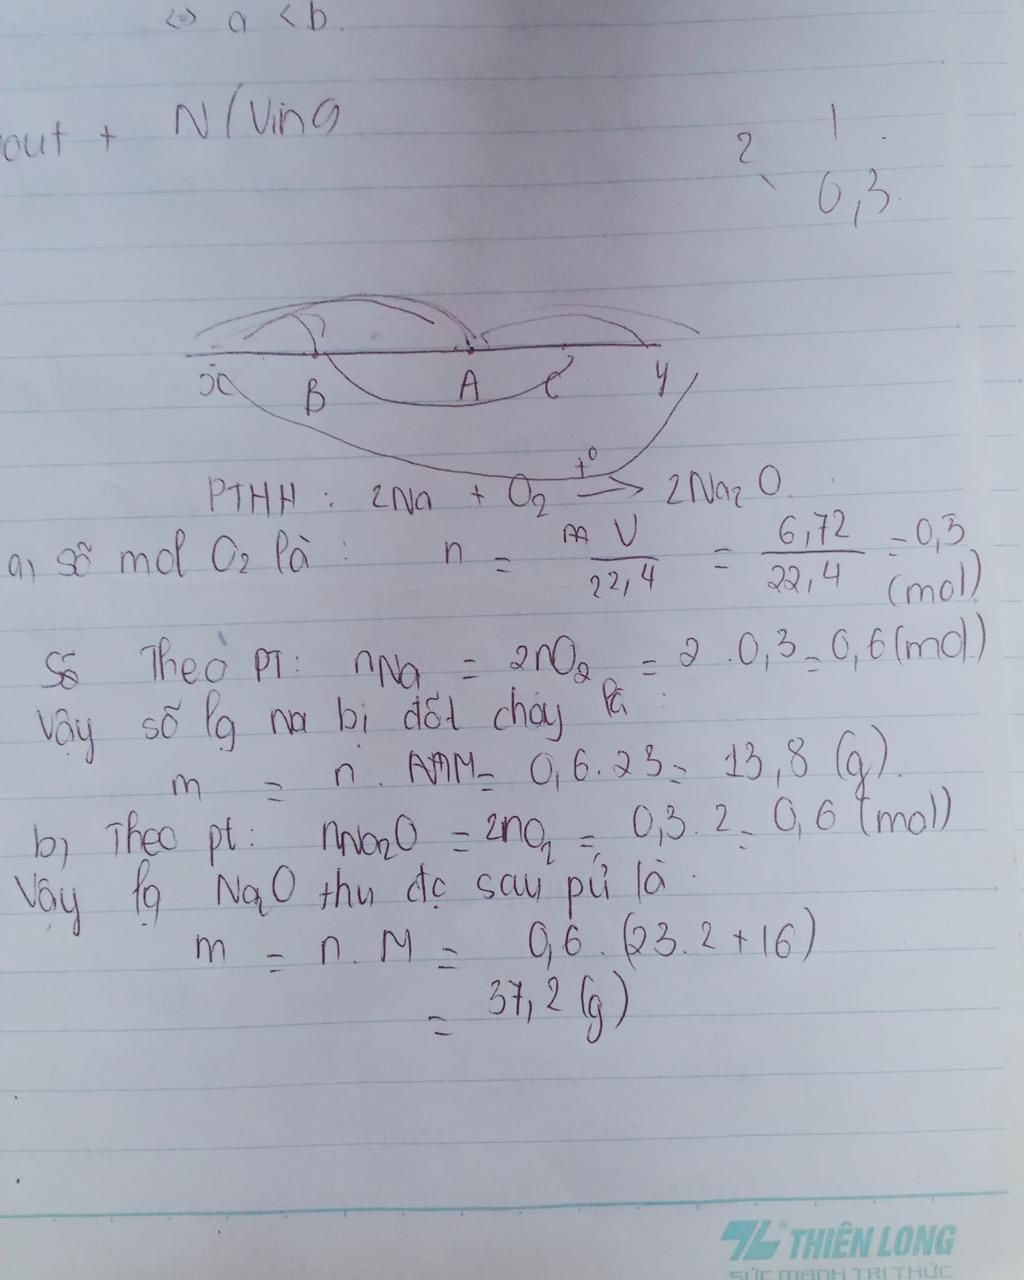 <=> a < b.
out + N/Ving
2 1
0,3.
x B A C y
PTHH : 2Na + O₂ t⁰→ 2Na₂O.
a, số mol O₂ là : n = V/22,4 = 6,72/22,4 = 0,3 (mol)
Số Theo PT: nNa = 2nO₂ = 2.0,3 = 0,6 (mol)
Vậy số lg na bị đốt cháy là :
m = n. M = 0,6.23 = 13,8 (g).
b, Theo pt: nNa₂O = 2nO₂ = 0,3.2 = 0,6 (mol)
Vậy lg Na₂O thu đc sau pứ là
m = n. M = 0,6.(23.2+16)
= 37,2 (g)
THIÊN LONG
SỨC MẠNH TRI THỨC